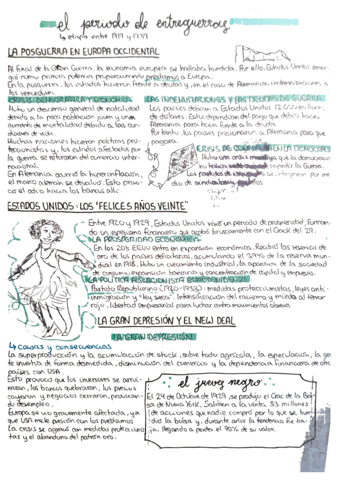 el periodo de entreguerras
↳ etapa entre 1919 y 1939
LA POSGUERRA EN EUROPA OCCIDENTAL
Al final de la Gran Guerra, la economía europea se hallaba hundida. Por ello, Estados Unidos emer-
gió como primera potencia proporcionando préstamos a Europa.
En la posguerra, los estados hicieron frente a deudas y, en el caso de Alemania, indemnización a
los vencedores.
CRISIS DEMOGRÁFICA Y ECONÓMICA
Hubo un descenso general de natalidad
debido a la poca población joven y un
aumento de mortalidad debido a las con-
diciones de vida.
Muchas naciones hicieron políticas pro-
teccionistas y los estados afectados por
la guerra se retiraron del comercio inter-
nacional.
En Alemania surgió la hiperinflación,
el marco alemán se devaluó. Esto
LAS INDEMNIZACIONES Y LAS DEUDAS DE GUERRA
Los países debían a Estados Unidos 12.000 millones
de dólares. Estos dependían del pago que debía hacer
Alemania para hacer frente a la deuda.
Por tanto, los países presionaron a Alemania para que
pagara.
CRISIS DE LA DEMOCRACIA
Hubo una que la democracia
no la guerra.
Los partidos de
de
ESTADOS UNIDOS: LOS "FELICES AÑOS VEINTE"
Entre 1920 y 1929, Estados Unidos vivió un periodo de prosperidad,
un espejismo financiero que acabó bruscamente con el Crack del 29.
LA PROSPERIDAD ECONÓMICA
En los 20s EEUU entró en expansión económica. Recibió las reservas de
oro de los países deficitarios, acumulando el 39% de la reserva mun-
dial en 1918. Hubo un crecimiento industrial, la aparición de la sociedad
de consumo, expansión bancaria y concentración de capital y empresas.
LA POLÍTICA AISLACIONISTA ESTADOUNIDENSE
Partido Republicano (1920-1932): medidas proteccionistas, leyes anti-
inmigración y "ley seca". Intensificación del racismo y miedo al terror
rojo. Libertad empresarial para luchar contra movimientos obreros.
LA GRAN DEPRESIÓN Y EL NEW DEAL
LA GRAN DEPRESIÓN
↳ causas y consecuencias
La superproducción y la acumulación de stock, sobre todo agrícola, la especulación, la gente
invertía de forma desmedida, disminución del comercio y la dependencia financiera de otros
países con USA.
Esto provocó que los inversores se arrui-
naran, los bancos quebraron, los precios
cayeron y negocios cerraron, provocan-
do desempleo.
Europa se vio gravemente afectada, ya
que USA
La crisis se agravó con medidas proteccionis-
tas y el abandono del patrón oro.
el jueves negro
El 24 de Octubre de 1929, se produjo el Crac de la Bol-
sa de Nueva York. Salieron a la venta 33 millones
de acciones que nadie compró por lo que se hun-
dió la bolsa y, durante años la tendencia fue ba-
ja, llegando a perder el 90% de su valor.